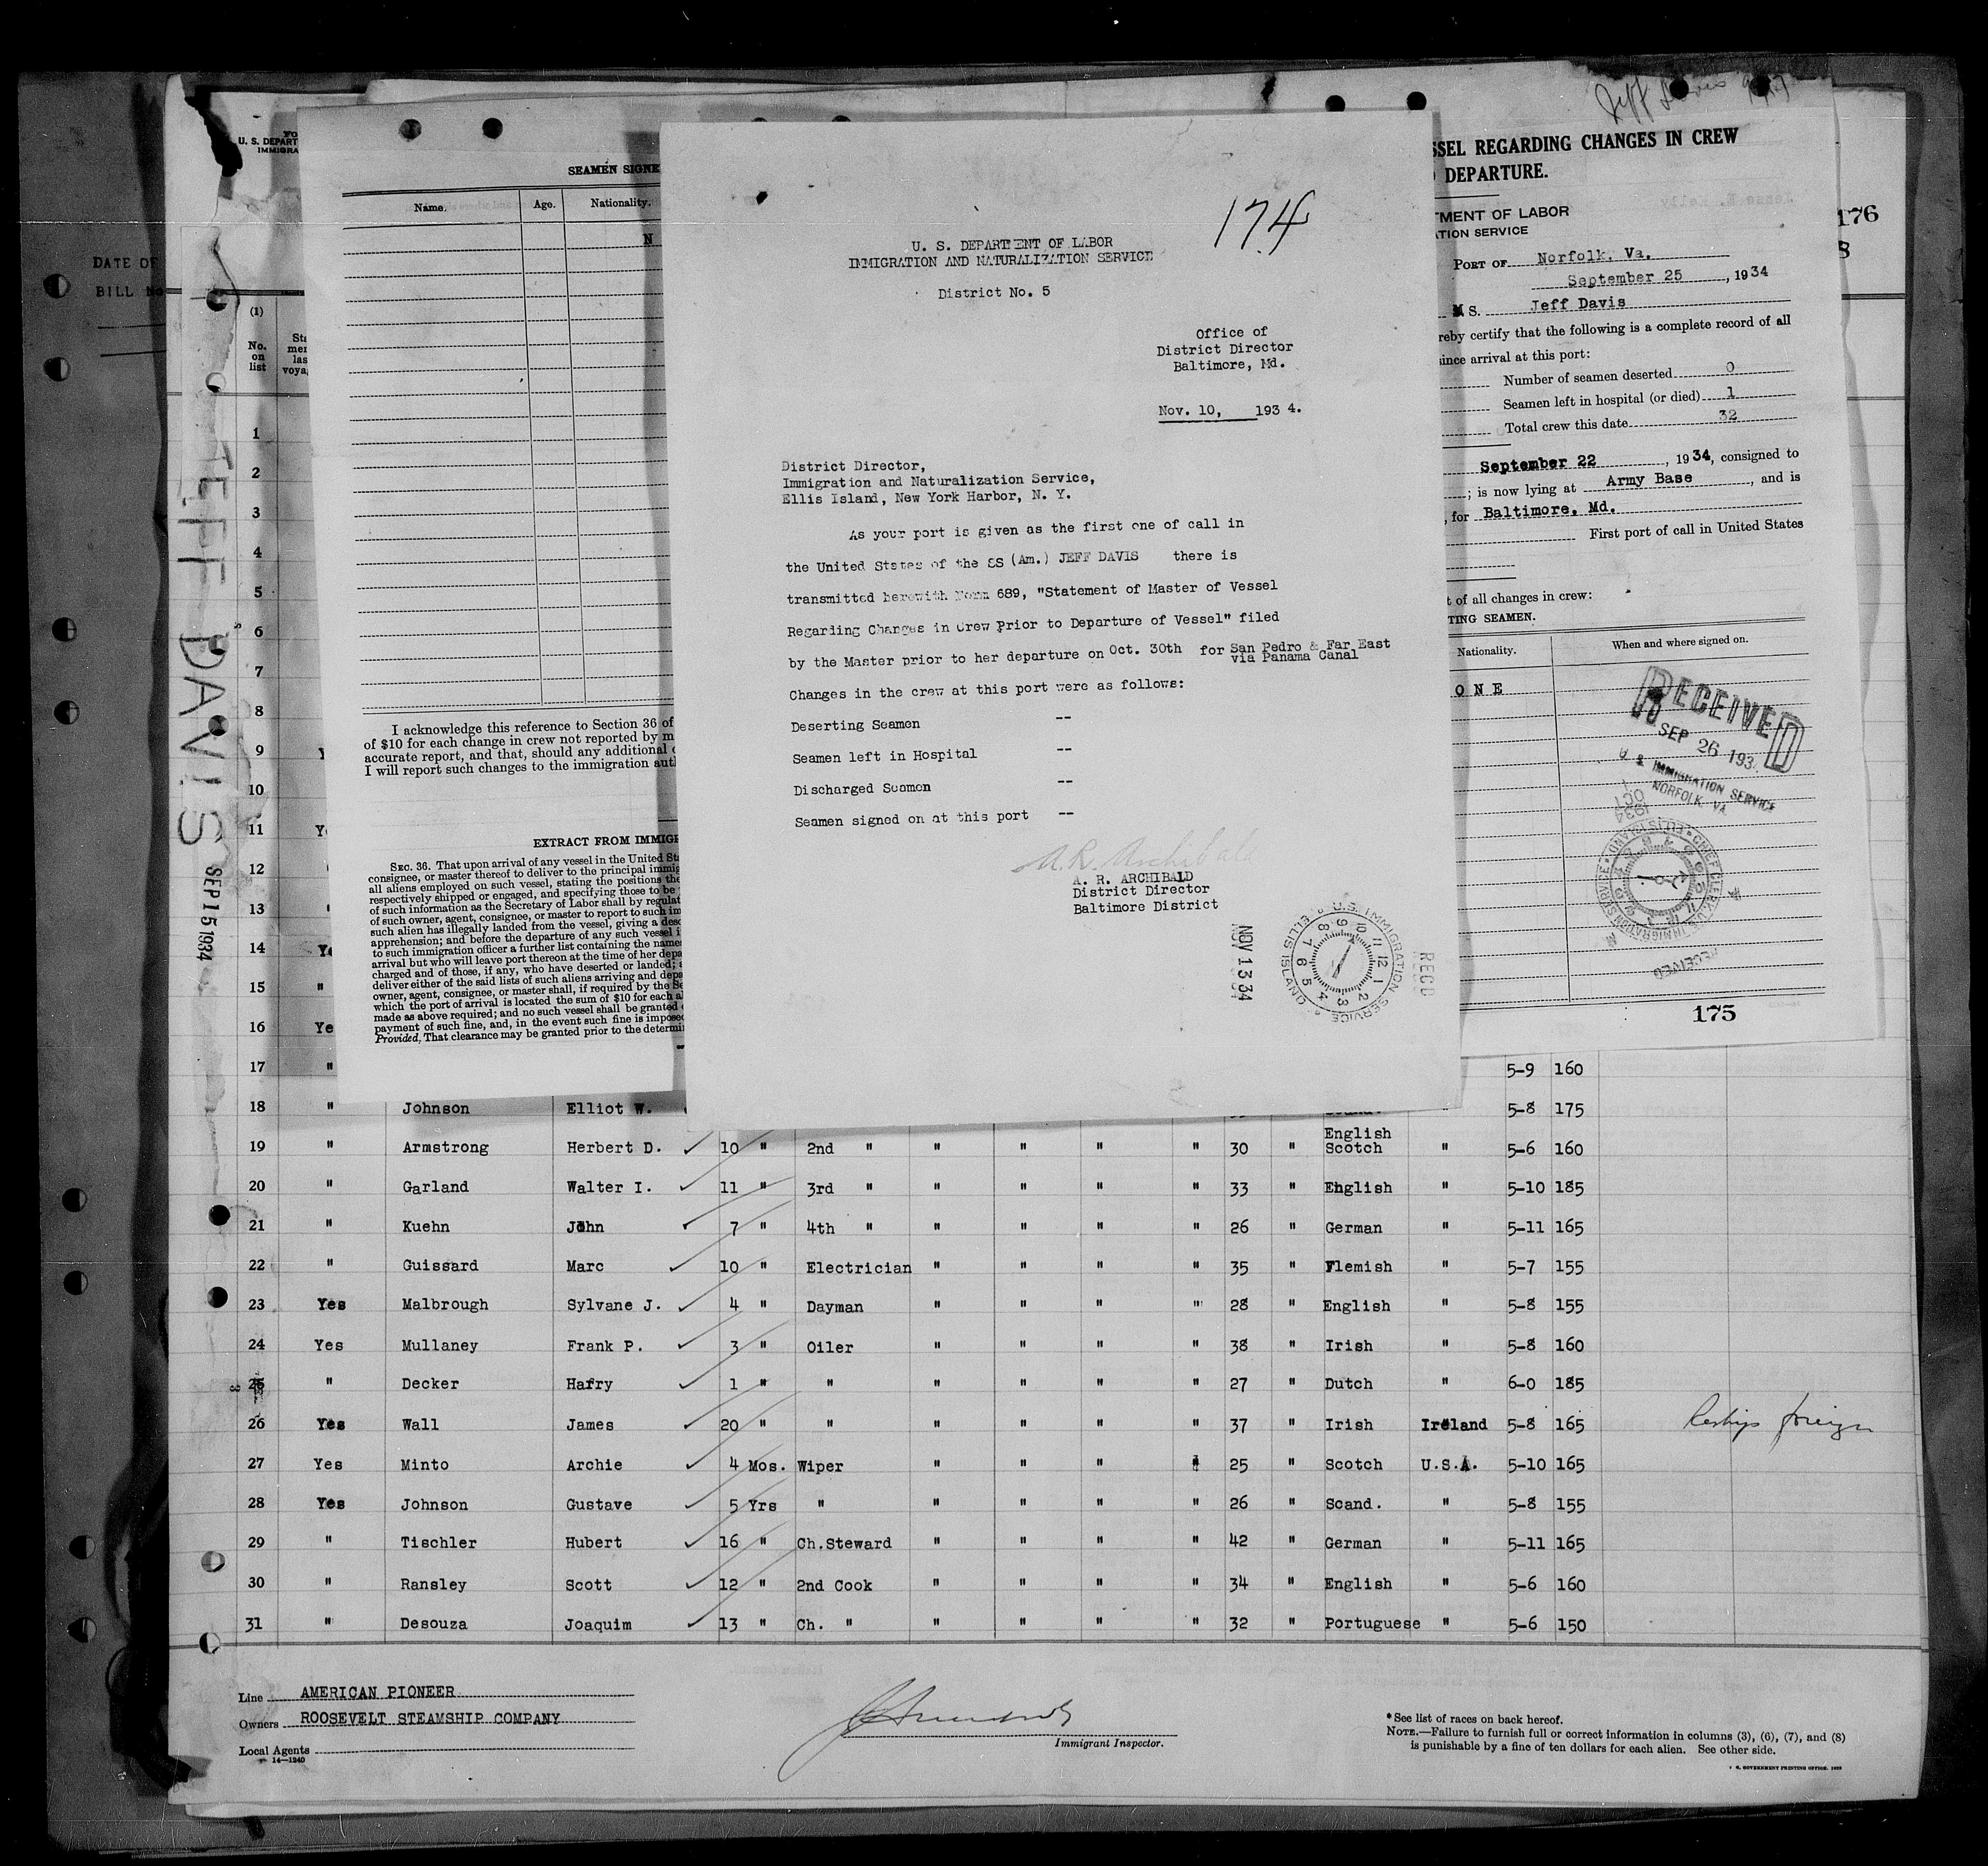 Jeff Davis
FO
U. S. DEPART
IMMIGRA
DATE OF
BILL No
(1)
No.
on
list
Sta
mer
las
voya
JEFF DAVIS
SEP 15 1934
SEAMEN SIGNE
Name.
Age.
Nationality.
N
I acknowledge this reference to Section 36 of
of $10 for each change in crew not reported by m
accurate report, and that, should any additional c
I will report such changes to the immigration aut
EXTRACT FROM IMMIG
SEC. 36. That upon arrival of any vessel in the United Sta
consignee, or master thereof to deliver to the principal immig
all aliens employed on such vessel, stating the positions the
respectively shipped or engaged, and specifying those to be
of such information as the Secretary of Labor shall by regulat
of such owner, agent, consignee, or master to report to such im
such alien has illegally landed from the vessel, giving a desc
apprehension; and before the departure of any such vessel i
to such immigration officer a further list containing the names
arrival but who will leave port thereon at the time of her depa
charged and of those, if any, who have deserted or landed; a
deliver either of the said lists of such aliens arriving and depa
owner, agent, consignee, or master shall, if required by the Se
which the port of arrival is located the sum of $10 for each a
made as above required; and no such vessel shall be granted c
payment of such fine, and, in the event such fine is imposed
Provided, That clearance may be granted prior to the determi
174
U. S. DEPARTMENT OF LABOR
IMMIGRATION AND NATURALIZATION SERVICE
District No. 5
Office of
District Director
Baltimore, Md.
Nov. 10, 193 4.
District Director,
Immigration and Naturalization Service,
Ellis Island, New York Harbor, N. Y.
As your port is given as the first one of call in
the United States of the SS (Am.) JEFF DAVIS there is
transmitted herewith Form 689, "Statement of Master of Vessel
Regarding Changes in Crew Prior to Departure of Vessel" filed
by the Master prior to her departure on Oct. 30th for San Pedro & Far East
via Panama Canal
Changes in the crew at this port were as follows:
Deserting Seamen --
Seamen left in Hospital --
Discharged Seamen --
Seamen signed on at this port --
A. R. Archibald
A. R. ARCHIBALD
District Director
Baltimore District
NOV 13 34
U.S. IMMIGRATION SERVICE ELLIS ISLAND
REC'D
SSEL REGARDING CHANGES IN CREW
DEPARTURE.
TMENT OF LABOR
ATION SERVICE
176
8
PORT OF Norfolk, Va.
September 25, 1934
M S. Jeff Davis
reby certify that the following is a complete record of all
since arrival at this port:
Number of seamen deserted 0
Seamen left in hospital (or died) 1
Total crew this date 32
September 22, 1934, consigned to
; is now lying at Army Base, and is
, for Baltimore, Md.
First port of call in United States
t of all changes in crew:
TING SEAMEN.
Nationality.
When and where signed on.
O N E
RECEIVED
SEP 26 193
U S IMMIGRATION SERVICE
NORFOLK, VA
OCT
1934
CHIEF CLERK U.S. IMMIGRATION SERVICE ELLIS ISLAND
RECEIVED
175
1
2
3
4
5
6
7
8
9 Y
10
11 Y
12
13 "
14 Ye
15 "
16 Ye
17 " 5-9 160
18 " Johnson Elliot W. " 5-8 175
19 " Armstrong Herbert D. 10 " 2nd " " " " " 30 " English Scotch " 5-6 160
20 " Garland Walter I. 11 " 3rd " " " " " 33 " English " 5-10 185
21 " Kuehn John 7 " 4th " " " " " 26 " German " 5-11 165
22 " Guissard Marc 10 " Electrician " " " " 35 " Flemish " 5-7 155
23 Yes Malbrough Sylvane J. 4 " Dayman " " " " 28 " English " 5-8 155
24 Yes Mullaney Frank P. 3 " Oiler " " " " 38 " Irish " 5-8 160
25 " Decker Harry 1 " " " " " " 27 " Dutch " 6-0 185
26 Yes Wall James 20 " " " " " " 37 " Irish Ireland 5-8 165 Reships foreign
27 Yes Minto Archie 4 Mos. Wiper " " " " 25 " Scotch U.S.A. 5-10 165
28 Yes Johnson Gustave 5 Yrs " " " " " 26 " Scand. " 5-8 155
29 " Tischler Hubert 16 " Ch.Steward " " " " 42 " German " 5-11 165
30 " Ransley Scott 12 " 2nd Cook " " " " 34 " English " 5-6 160
31 " Desouza Joaquim 13 " Ch. " " " " " 32 " Portuguese " 5-6 150
Line AMERICAN PIONEER
Owners ROOSEVELT STEAMSHIP COMPANY
Local Agents
14-1240
Immigrant Inspector.
* See list of races on back hereof.
NOTE.—Failure to furnish full or correct information in columns (3), (6), (7), and (8)
is punishable by a fine of ten dollars for each alien. See other side.
U. S. GOVERNMENT PRINTING OFFICE